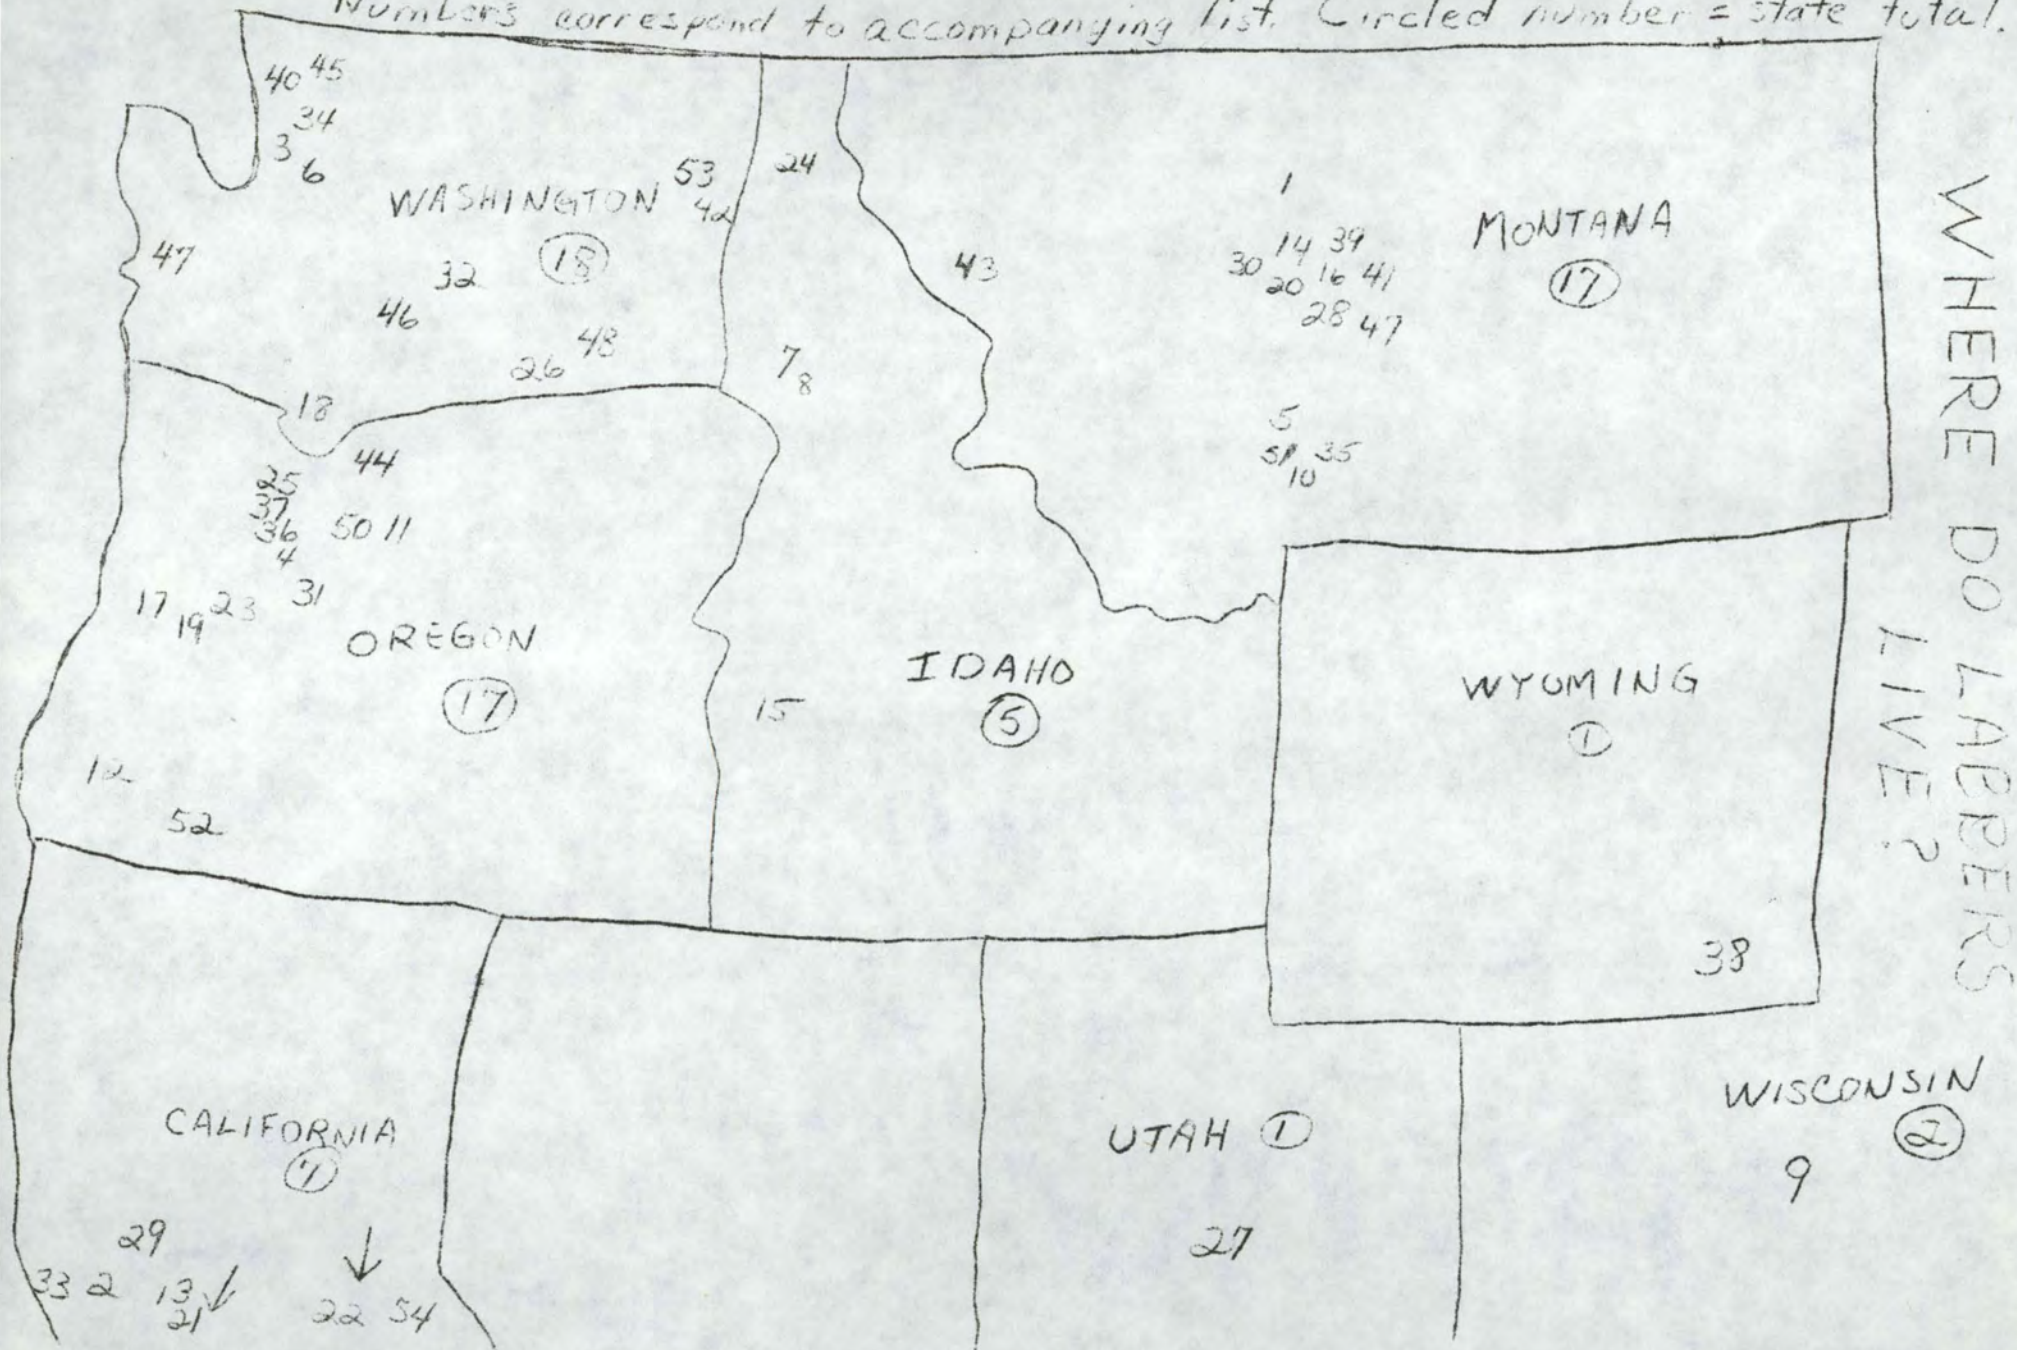 Numbers correspond to accompanying list. Circled number = state total.
WHERE DO LABBERS
LIVE?
40 45
34
3
6
WASHINGTON
18
53
42
47
32
46
48
26
18
24
7 8
15
IDAHO
5
43
1
14 39
30 20 16 41
28 47
MONTANA
17
5
51 35
10
44
25
37
36
4
50 11
31
17 19 23
OREGON
17
12
52
WYOMING
1
38
CALIFORNIA
7
29
33 2 13
21
22 54
UTAH 1
27
WISCONSIN
2
9